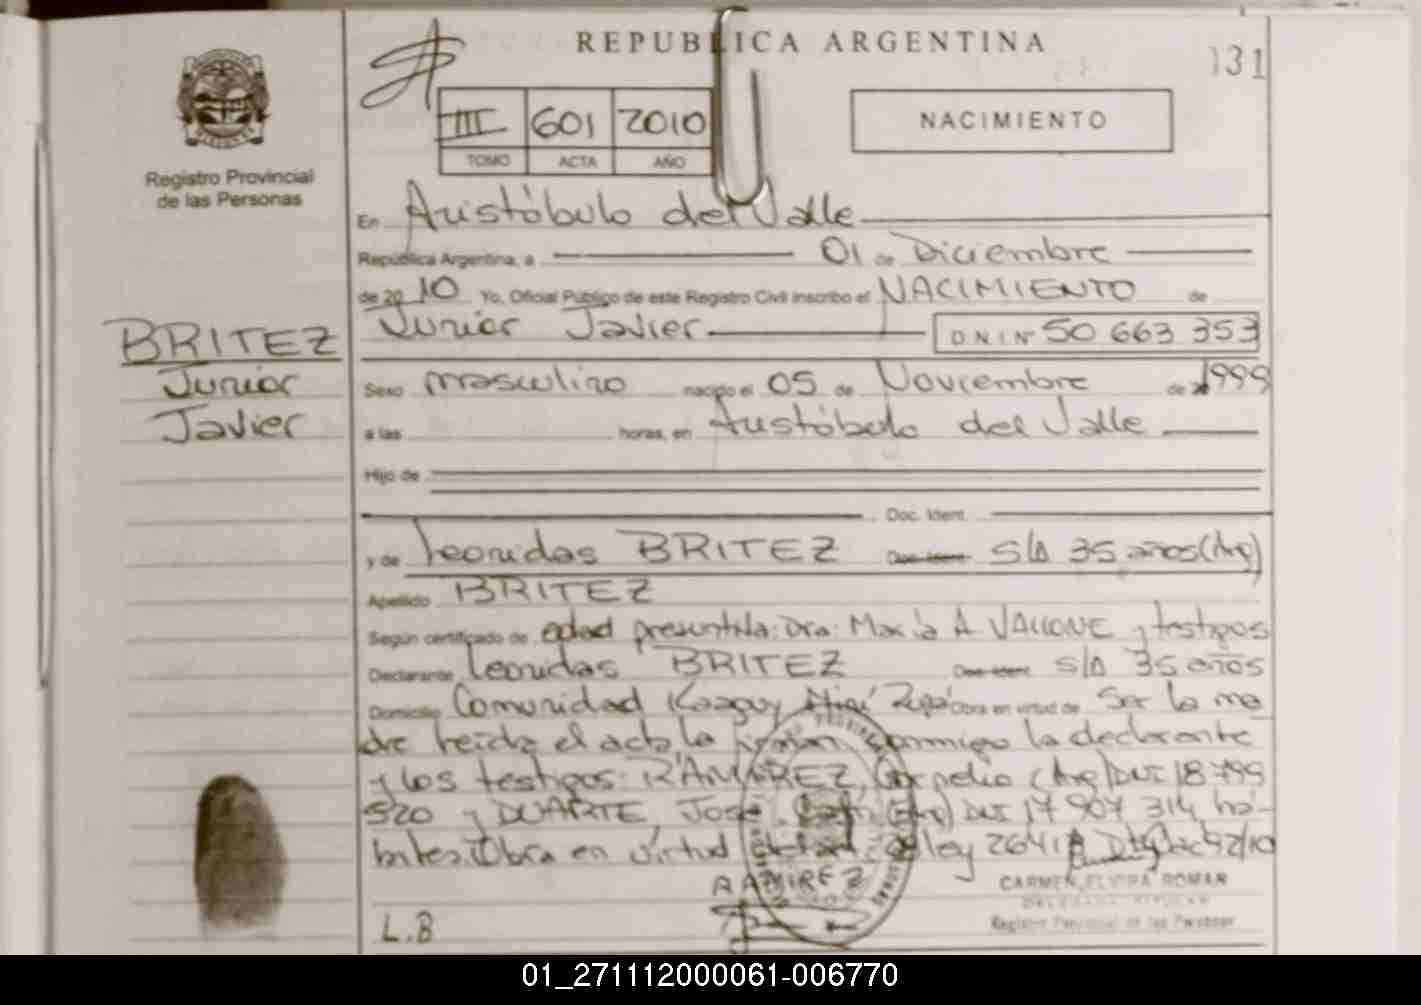 REPUBLICA ARGENTINA
131
III 601 2010
TOMO ACTA AÑO
NACIMIENTO
Registro Provincial
de las Personas
En Aristóbulo del Valle
República Argentina, a 01 de Diciembre
de 2010 Yo, Oficial Público de este Registro Civil inscribo el NACIMIENTO de
Junior Javier D.N.I Nº 50 663 353
BRITEZ
Junior
Javier
Sexo masculino nacido el 05 de Noviembre de 1999
a las horas, en Aristóbulo del Valle
Hijo de
Doc. Ident.
y de Leonidas BRITEZ Doc. Ident. S/D 35 años (Arg)
Apellido BRITEZ
Según certificado de edad presentada: Dra: María A. VALLONE y testigos
Declarante Leonidas BRITEZ Doc. Ident. S/D 35 años
Domicilio Comunidad Kaaguy Miní Obra en virtud de Ser la ma
dre leída el acta la firman conmigo la declarante
y los testigos: RAMIREZ, Cornelio (Arg) DNI 18 799
520 y DUARTE José (Arg) DNI 17 907 314 há-
biles. Obra en virtud ley 26413
RAMIREZ
L.B
CARMEN ELVIRA ROMAN
DELEGADA TITULAR
Registro Provincial de las Personas
01_271112000061-006770